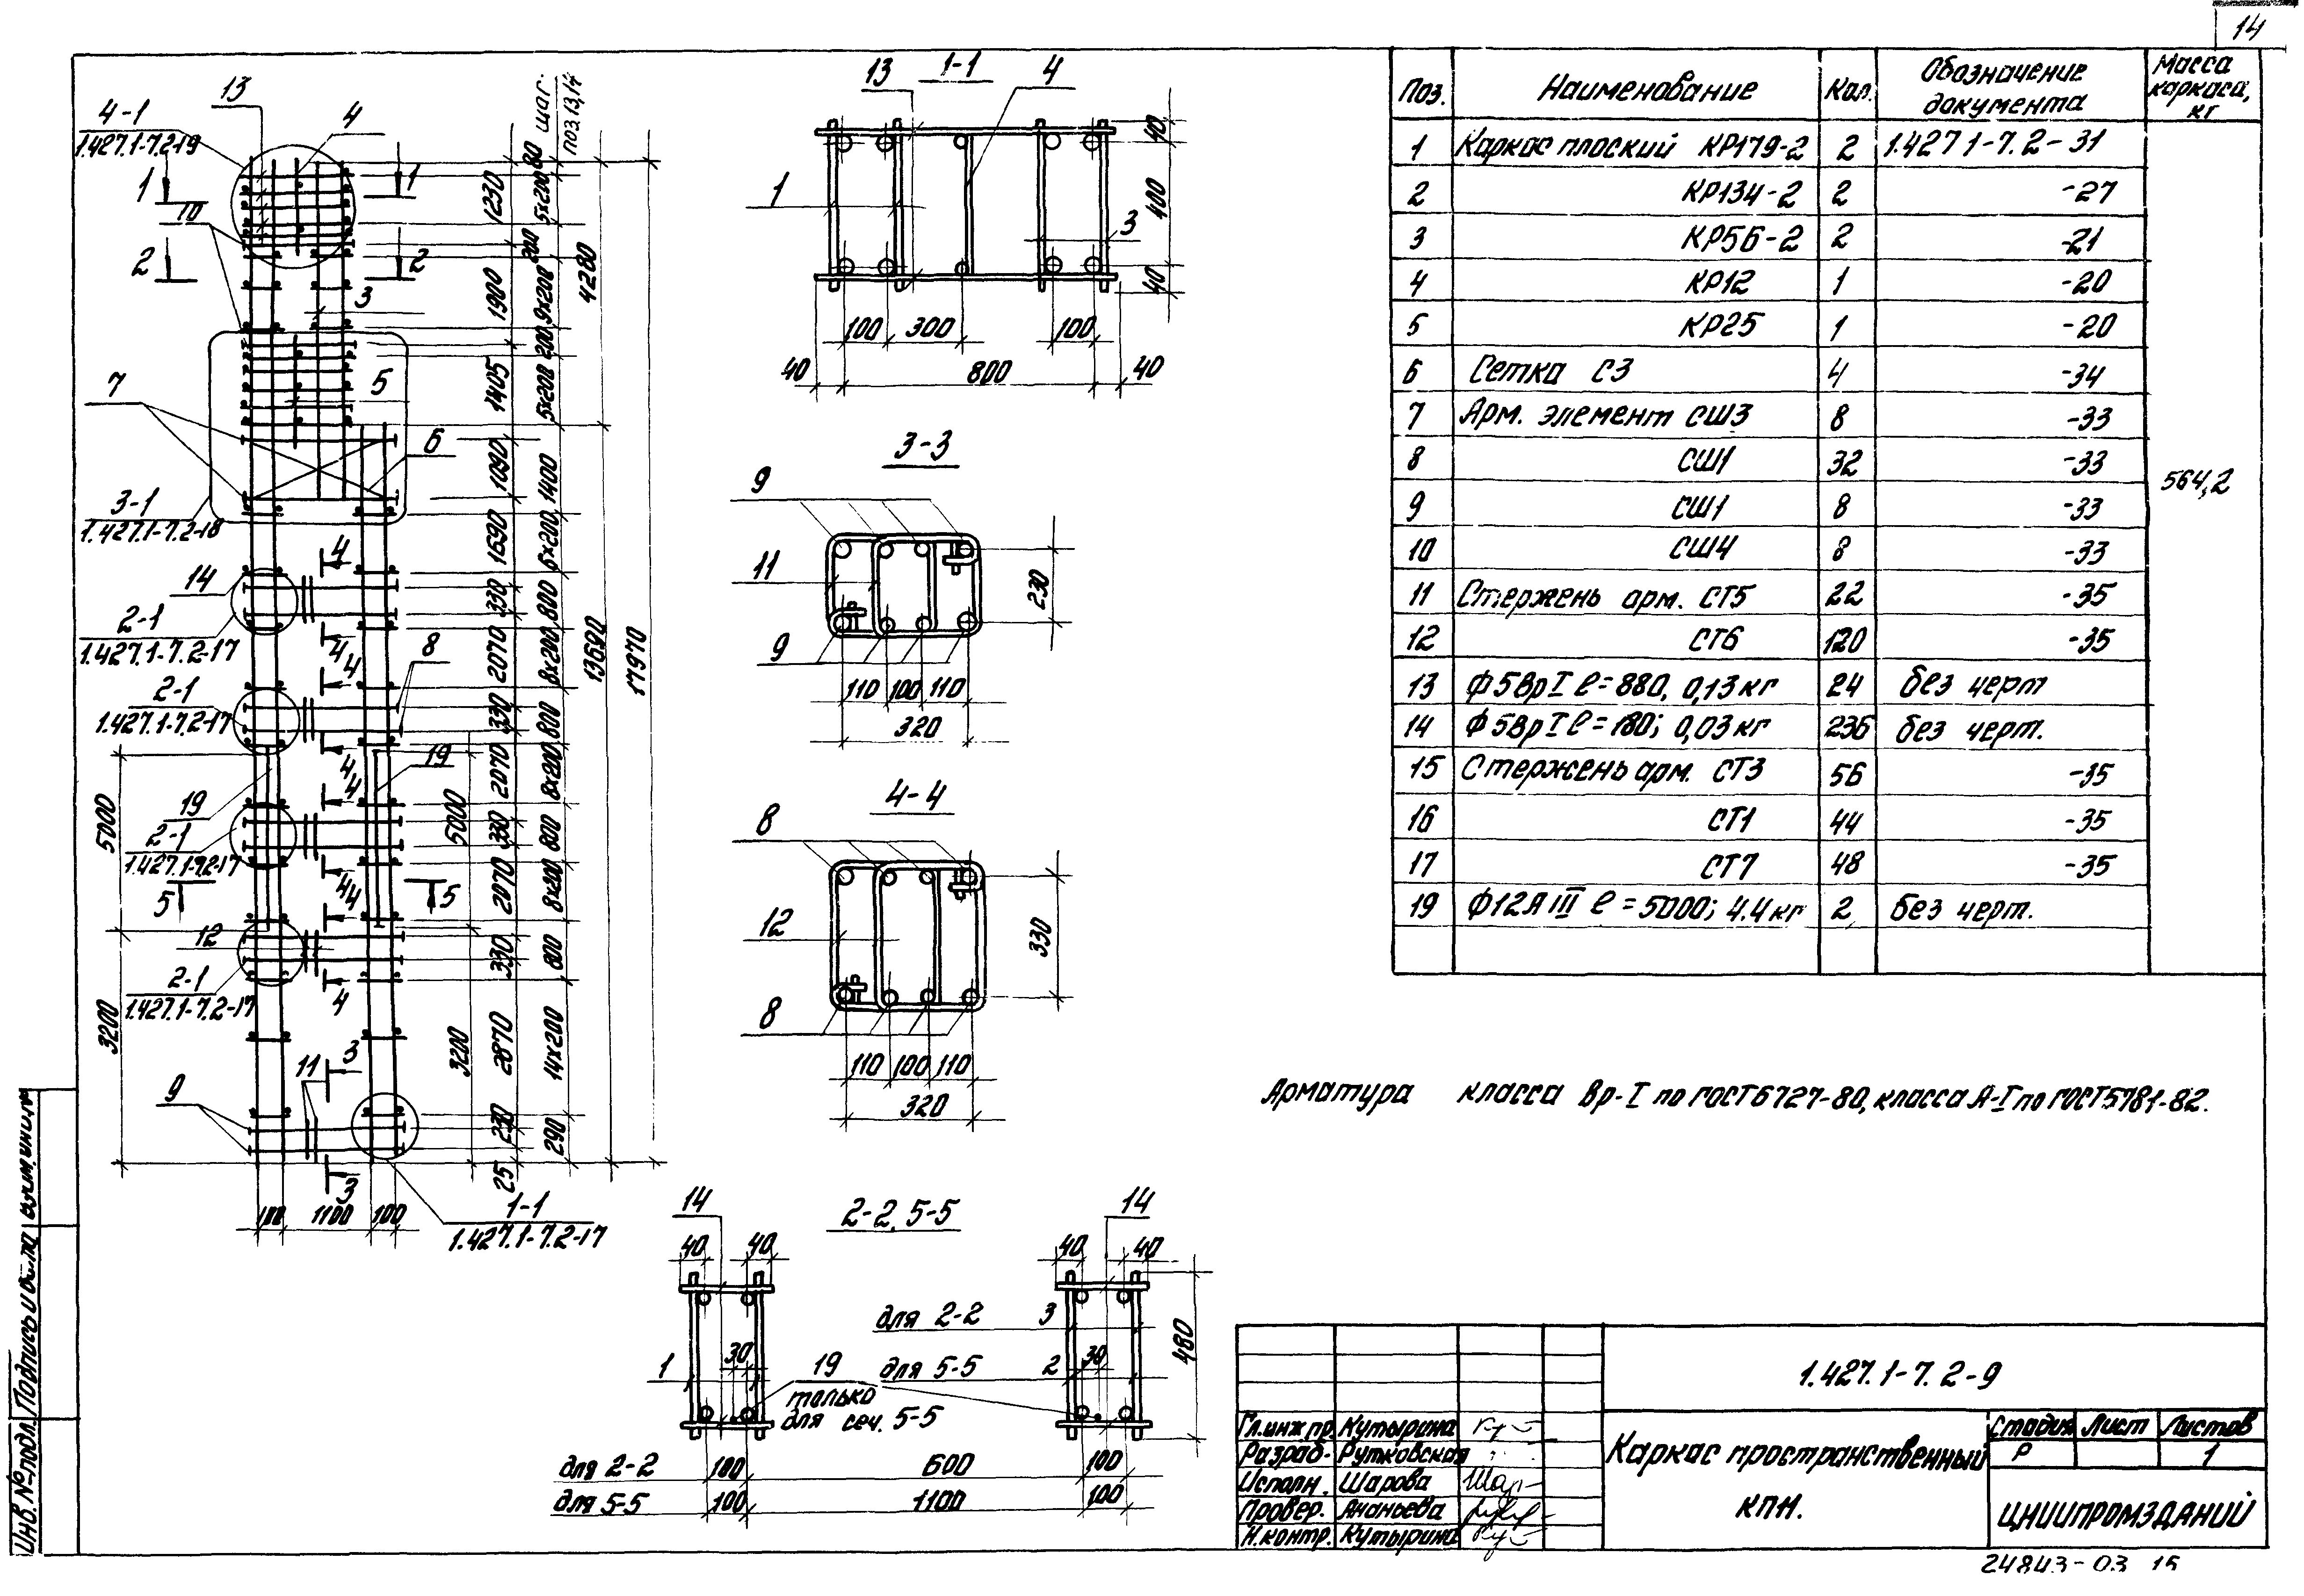 14
Поз. Наименование Кол. Обозначение документа Масса каркаса, кг
1 Каркас плоский КР179-2 2 1.427.1-7.2-31
2 КР134-2 2 -27
3 КР56-2 2 -21
4 КР12 1 -20
5 КР25 1 -20
6 Сетка С3 4 -34
7 Арм. элемент СШ3 8 -33
8 СШ1 32 -33
564,2
9 СШ1 8 -33
10 СШ4 8 -33
11 Стержень арм. СТ5 22 -35
12 СТ6 120 -35
13 Ф5ВрI ℓ=880, 0,13кг 24 без черт
14 Ф5ВрI ℓ=180; 0,03кг 236 без черт.
15 Стержень арм. СТ3 56 -35
16 СТ1 44 -35
17 СТ7 48 -35
19 Ф12АIII ℓ=5000; 4.4кг 2 без черт.
Арматура класса Вр-I по ГОСТ6727-80, класса А-I по ГОСТ5781-82.
13
4-1
1.427.1-7.2-19
4
1 1
10
2 2
3
7
5
6
3-1
1.427.1-7.2-18
4
14
2-1
1.427.1-7.2-17
4
4
8
2-1
1.427.1-7.2-17
4
4
19
19
2-1
1.427.1-7.2-17
4
4
5 5
12
2-1
1.427.1-7.2-17
4
3
11
9
3
1-1
1.427.1-7.2-17
5000
3200
5000
3200
100 1100 100
1230
200
1900
1405
1090
1690
330
2070
330
2070
330
2070
330
2870
230
25
80 шаг. поз 13,14
5х200
9х200
200
5х200
1400
6х200
800
8х200
800
8х200
800
8х200
800
14х200
290
4280
13690
17970
1-1
13 4
1
3
40
400
40
100 300 100
40 800 40
3-3
9
11
9
230
110 100 110
320
4-4
8
12
8
330
110 100 110
320
2-2, 5-5
14 14
40 40 40 40
для 2-2 3
1 30 19 для 5-5 2 30
только
для сеч. 5-5
480
для 2-2 100 600 100
для 5-5 100 1100 100
1.427.1-7.2-9
Каркас пространственный
КПН.
Стадия Лист Листов
Р 1
ЦНИИПРОМЗДАНИЙ
Гл.инж.пр. Кутырина
Разраб. Рутковская
Исполн. Шарова
Провер. Ананьева
Н.контр. Кутырина
Инв.№подл. Подпись и дата Взам.инв.№
24843-03 15